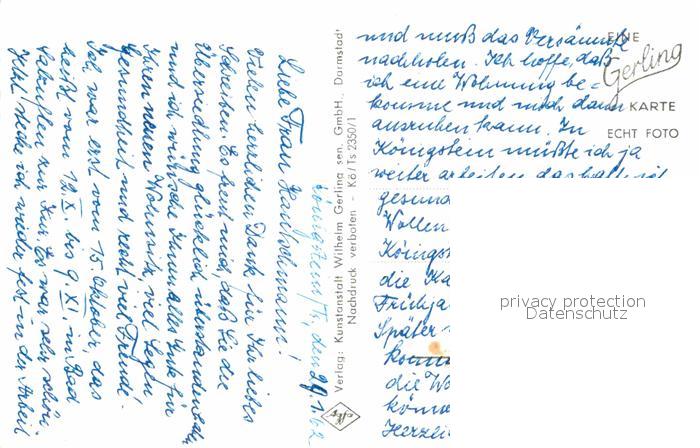 Königstein/Ts, den 29.1.62
Liebe Frau
Vielen herzlichen Dank für Ihr liebes
Schreiben. Es freut mich, daß Sie die
Übersiedlung glücklich überstanden haben
und ich wünsche Ihnen alles Gute für
Ihren neuen Wohnsitz, viel Segen
Gesundheit und recht viel Freude!
Ich war erst vom 15. Oktober, das
heißt vom 12. X. bis 9. XI. in Bad
zur Kur. Es war sehr schön
Jetzt stehe ich wieder fest in der Arbeit
und muß das Versäumte
nachholen. Ich hoffe, daß
ich eine Wohnung be=
komme und mich dann
ausruhen kann. In
Königstein müßte ich ja
weiter arbeiten
gesun
Wollen
Königs
die Ka
Frühja
Später
komm
die Wo
könne
Herzli
EINE
Gerling
KARTE
ECHT FOTO
Verlag: Kunstanstalt Wilhelm Gerling sen. GmbH., Darmstadt
Nachdruck verboten - Kö/Ts 2350/1
privacy protection
Datenschutz